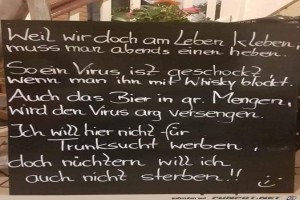 Weil wir doch am Leben kleben,
muss man abends einen heben.
So ein Virus ist geschockt
wenn man ihn mit Whisky blockt.
Auch das Bier in gr. Mengen,
wird den Virus arg versengen.
Ich will hier nicht für
Trunksucht werben,
doch nüchtern will ich
auch nicht sterben!!